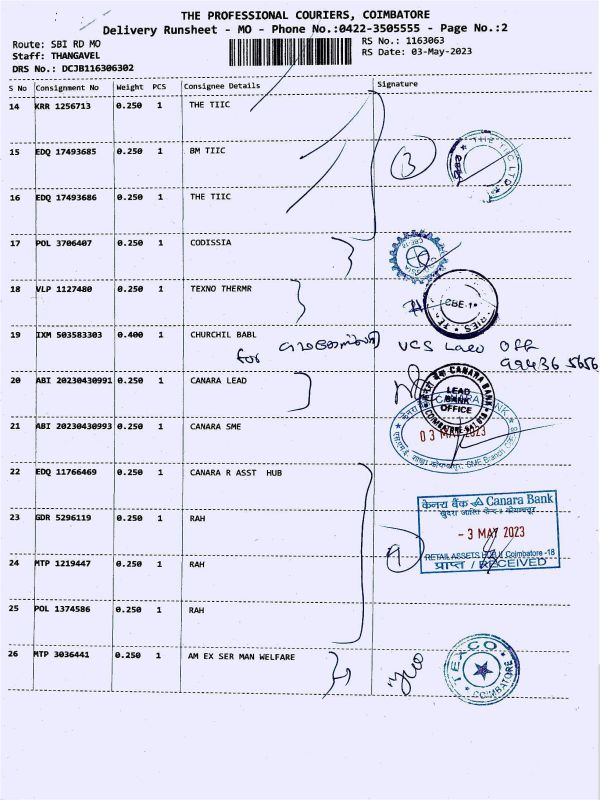 THE PROFESSIONAL COURIERS, COIMBATORE
Delivery Runsheet - MO - Phone No.:0422-3505555 - Page No.:2
Route: SBI RD MO
RS No.: 1163063
Staff: THANGAVEL
RS Date: 03-May-2023
DRS No.: DCJB116306302
S No Consignment No Weight PCS Consignee Details Signature
14 KRR 1256713 0.250 1 THE TIIC
15 EDQ 17493685 0.250 1 BM TIIC
3
THE TIIC LTD
16 EDQ 17493686 0.250 1 THE TIIC
17 POL 3706407 0.250 1 CODISSIA
18 VLP 1127480 0.250 1 TEXNO THERMR
CBE-1
19 IXM 503583303 0.400 1 CHURCHIL BABL
for
VCS Laeo Off
99436 5656
20 ABI 20230430991 0.250 1 CANARA LEAD
CANARA BANK
LEAD
BANK
OFFICE
21 ABI 20230430993 0.250 1 CANARA SME
CANARA BANK
03 MAY 2023
SME Branch
22 EDQ 11766469 0.250 1 CANARA R ASST HUB
केनरा बैंक Canara Bank
23 GDR 5296119 0.250 1 RAH
- 3 MAY 2023
24 MTP 1219447 0.250 1 RAH
RETAIL ASSETS HUB Coimbatore -18
प्राप्त / RECEIVED
25 POL 1374586 0.250 1 RAH
26 MTP 3036441 0.250 1 AM EX SER MAN WELFARE
TEXCO
COIMBATORE